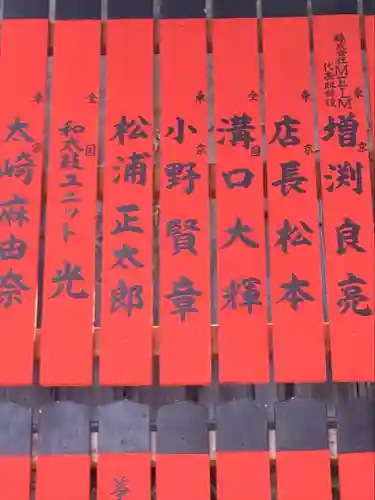 株式会社MEIM
代表取締役
奉 増渕良亮 宗
奉 店長松本 宗
全 溝口大輝 国
奉 小野賢章 宗
松浦正太郎
全 和太鼓ユニット 国
光
奉 太崎麻由奈 宗